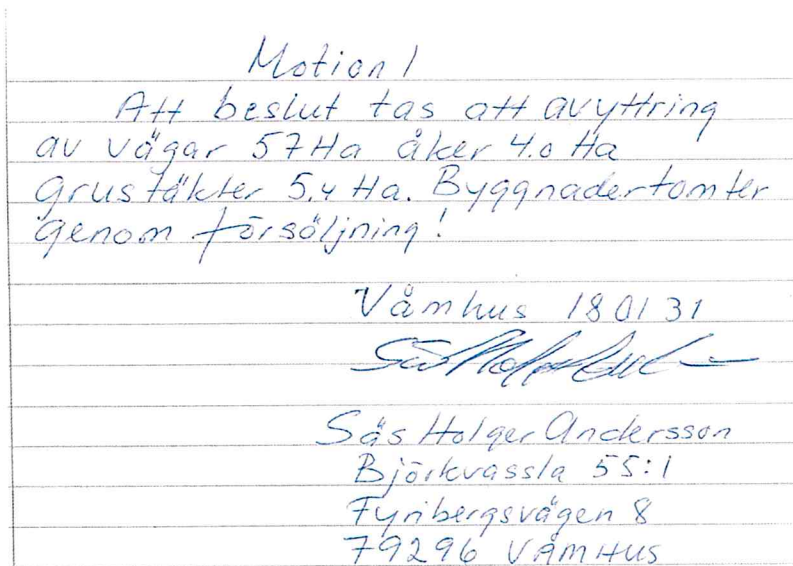 Motion 1
Att beslut tas att avyttring
av vägar 57 Ha åker 4.0 Ha
grustäkter 5,4 Ha. Byggnadertomter
genom försäljning!
Våmhus 180131
Säs Holger Andersson
Björkvassla 55:1
Fyribergsvägen 8
79296 VÅMHUS